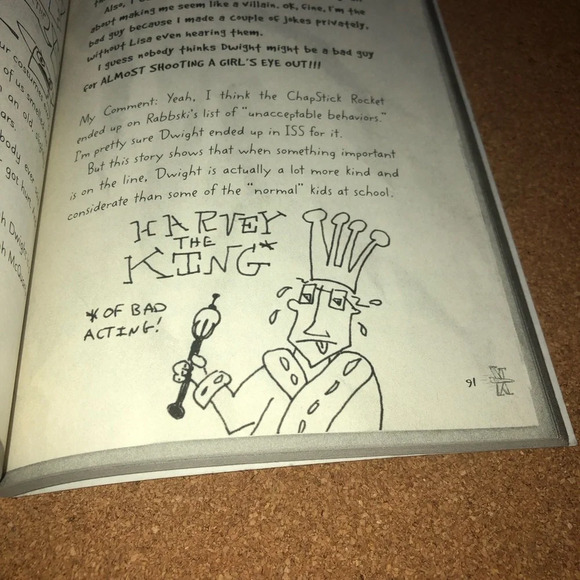 Also, I
about making me seem like a villain. OK, fine, I'm the
bad guy because I made a couple of jokes privately,
without Lisa even hearing them.
I guess nobody thinks Dwight might be a bad guy
for ALMOST SHOOTING A GIRL'S EYE OUT!!!
My Comment: Yeah, I think the ChapStick Rocket
ended up on Rabbski's list of "unacceptable behaviors."
I'm pretty sure Dwight ended up in ISS for it.
But this story shows that when something important
is on the line, Dwight is actually a lot more kind and
considerate than some of the "normal" kids at school.
HARVEY
THE
KING*
*OF BAD
ACTING!
91